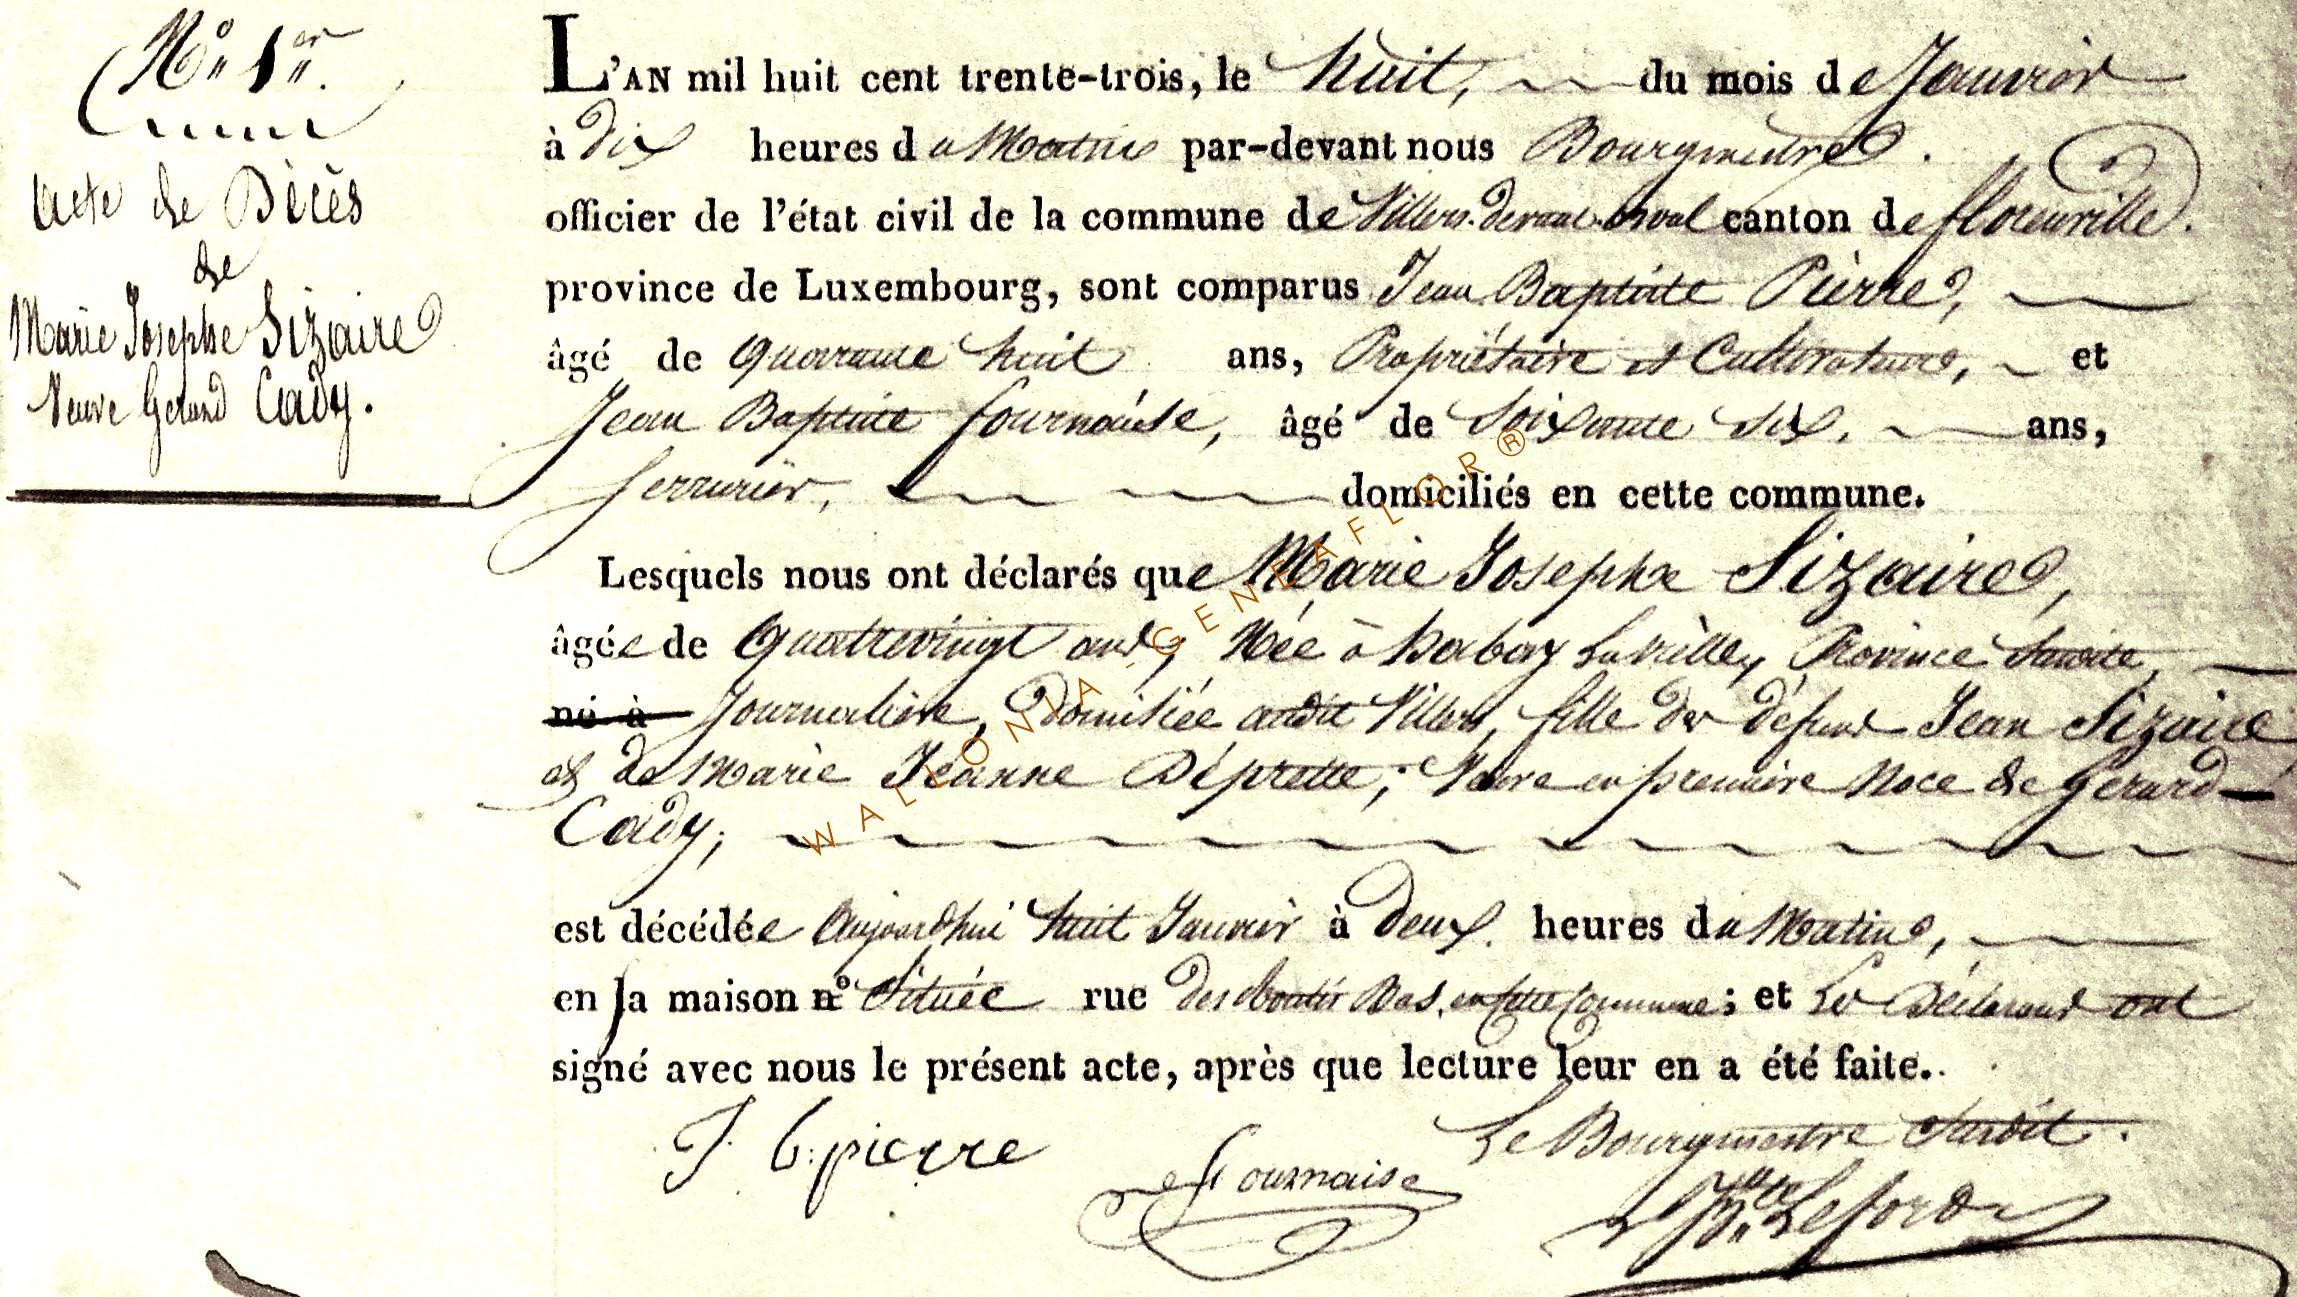 N° 1er
Acte de Décès
de
Marie Josephe Sizaire
Veuve Gerard Cady.
L'AN mil huit cent trente-trois, le huit, du mois de Janvier
à dix heures du Matin par-devant nous Bourgmestre
officier de l'état civil de la commune de Villers-devant-orval canton de florenville.
province de Luxembourg, sont comparus Jean Baptiste Pierre,
âgé de quarante huit ans, Propriétaire et Cultivateur, et
Jean Baptiste fournaise, âgé de Soixante six. ans,
serrurier, domiciliés en cette commune.
Lesquels nous ont déclarés que Marie Josephe Sizaire,
âgée de quatrevingt ans, Née à habay Lavielle, Province
né à Journalière, Domiciliée audit Villers, fille de défunt Jean Sizaire
et de Marie Jeanne Déprette; Veuve en première Noce de Gerard
Cady;
est décédée aujourd'hui huit Janvier à deux heures du Matin,
en la maison n° Située rue des Bas, en cette Commune; et Les Déclarans ont
signé avec nous le présent acte, après que lecture leur en a été faite.
J. b. pierre
fournaise
Le Bourgmestre Susdit.
WALLONIA-GENEAFLOR®